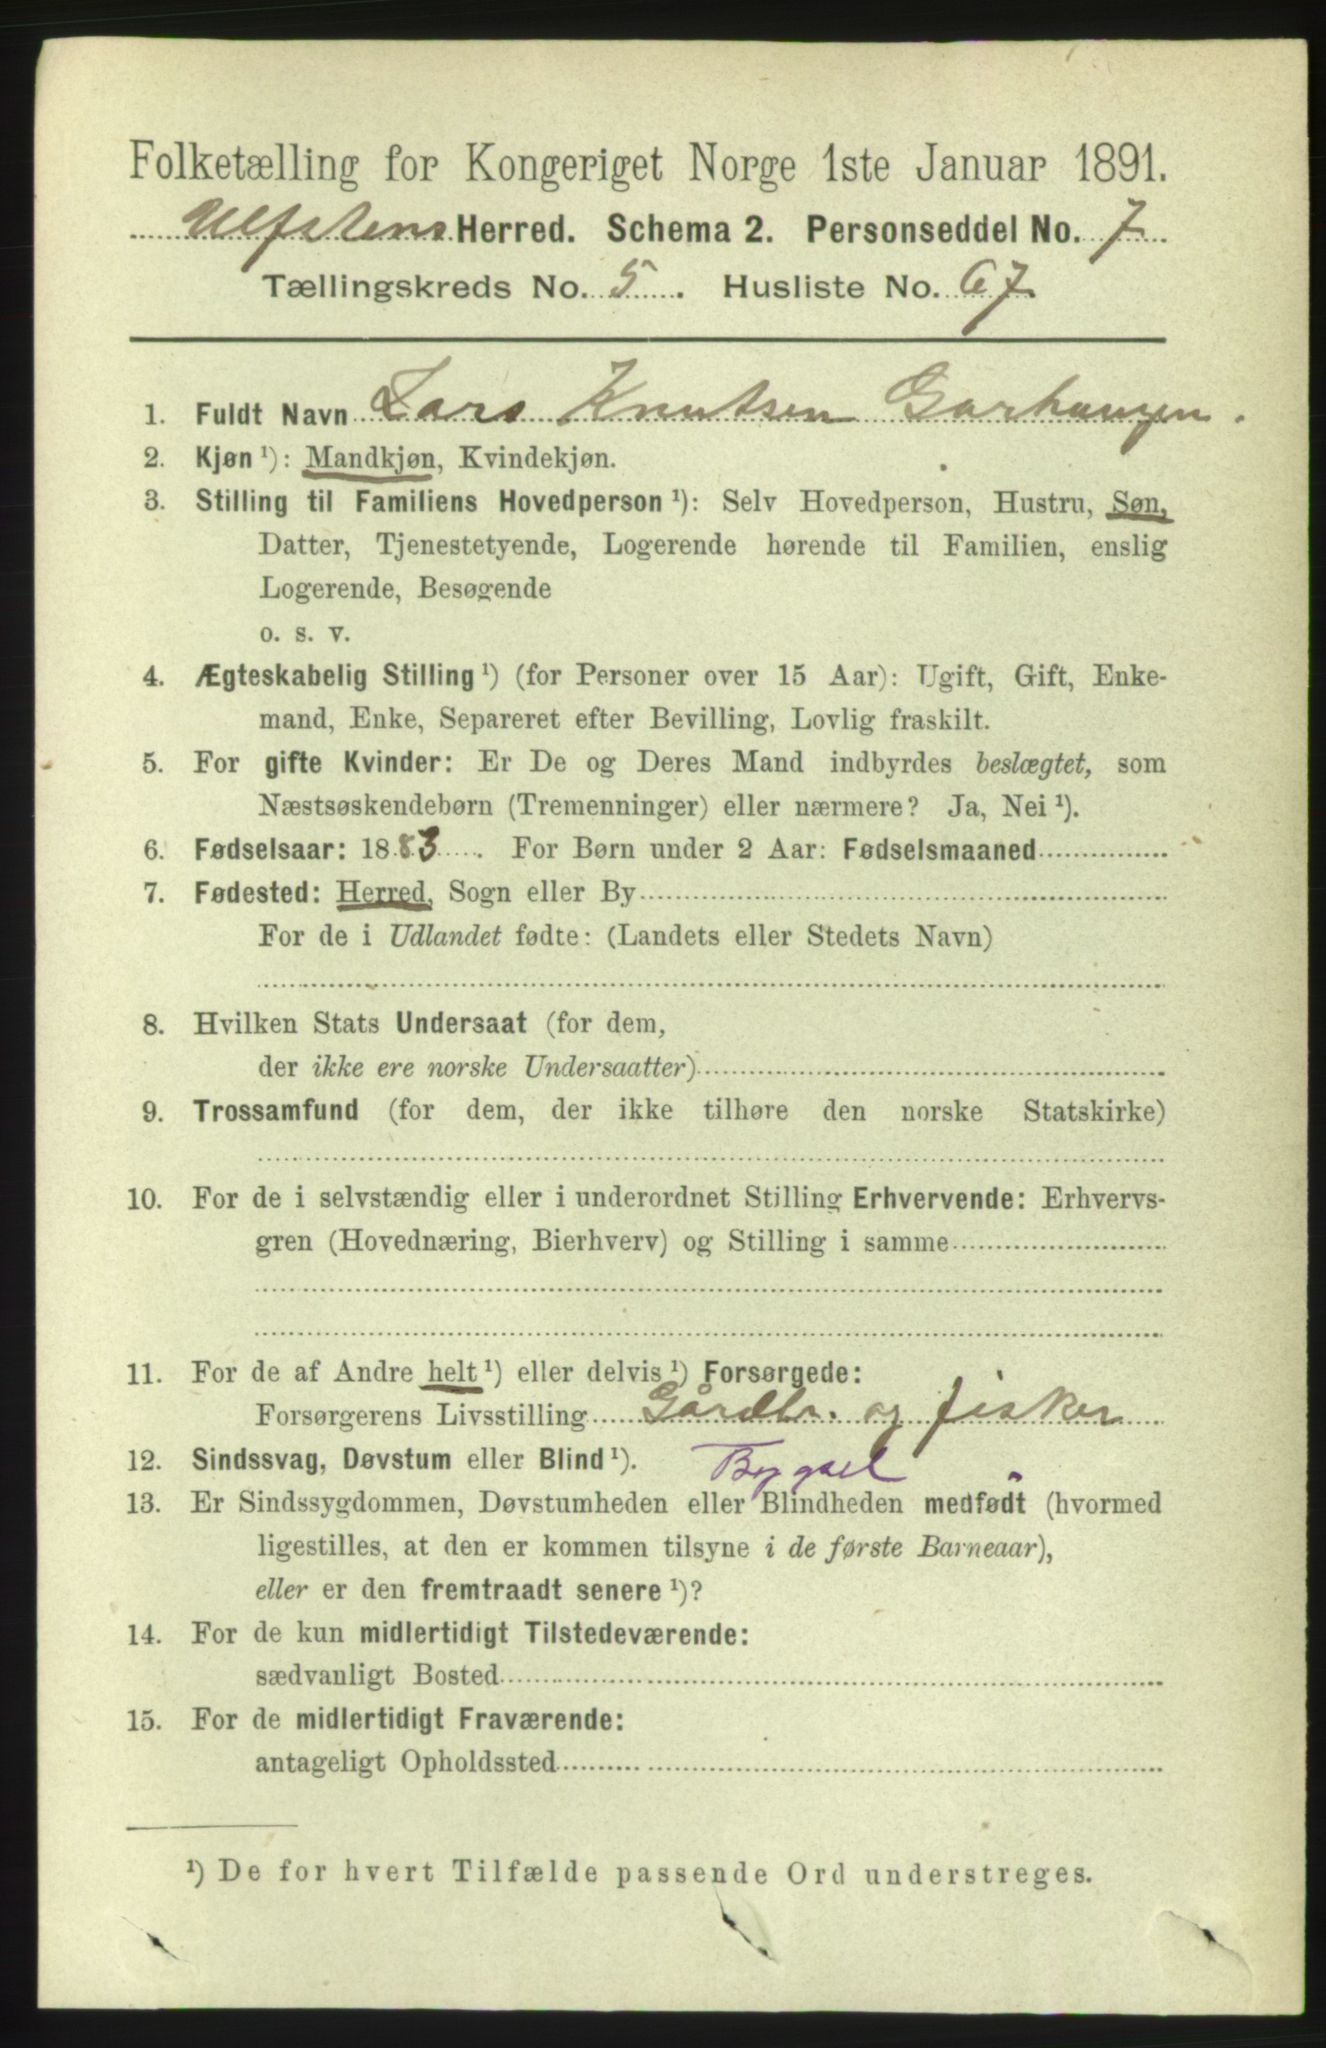 Folketælling for Kongeriget Norge 1ste Januar 1891.
Ulfstens Herred. Schema 2. Personseddel No. 7
Tællingskreds No. 5. Husliste No. 67
1. Fuldt Navn Lars Knutsen Garhaugen.
2. Kjøn ¹): Mandkjøn, Kvindekjøn.
3. Stilling til Familiens Hovedperson ¹): Selv Hovedperson, Hustru, Søn,
Datter, Tjenestetyende, Logerende hørende til Familien, enslig
Logerende, Besøgende
o. s. v.
4. Ægteskabelig Stilling ¹) (for Personer over 15 Aar): Ugift, Gift, Enke-
mand, Enke, Separeret efter Bevilling, Lovlig fraskilt.
5. For gifte Kvinder: Er De og Deres Mand indbyrdes beslægtet, som
Næstsøskendebørn (Tremenninger) eller nærmere? Ja, Nei ¹).
6. Fødselsaar: 1883. For Børn under 2 Aar: Fødselsmaaned
7. Fødested: Herred, Sogn eller By
For de i Udlandet fødte: (Landets eller Stedets Navn)
8. Hvilken Stats Undersaat (for dem,
der ikke ere norske Undersaatter)
9. Trossamfund (for dem, der ikke tilhøre den norske Statskirke)
10. For de i selvstændig eller i underordnet Stilling Erhvervende: Erhvervs-
gren (Hovednæring, Bierhverv) og Stilling i samme
11. For de af Andre helt ¹) eller delvis ¹) Forsørgede:
Forsørgerens Livsstilling Gårdbr. og fisker
12. Sindssvag, Døvstum eller Blind ¹). Bygsel
13. Er Sindssygdommen, Døvstumheden eller Blindheden medfødt (hvormed
ligestilles, at den er kommen tilsyne i de første Barneaar),
eller er den fremtraadt senere ¹)?
14. For de kun midlertidigt Tilstedeværende:
sædvanligt Bosted
15. For de midlertidigt Fraværende:
antageligt Opholdssted
¹) De for hvert Tilfælde passende Ord understreges.